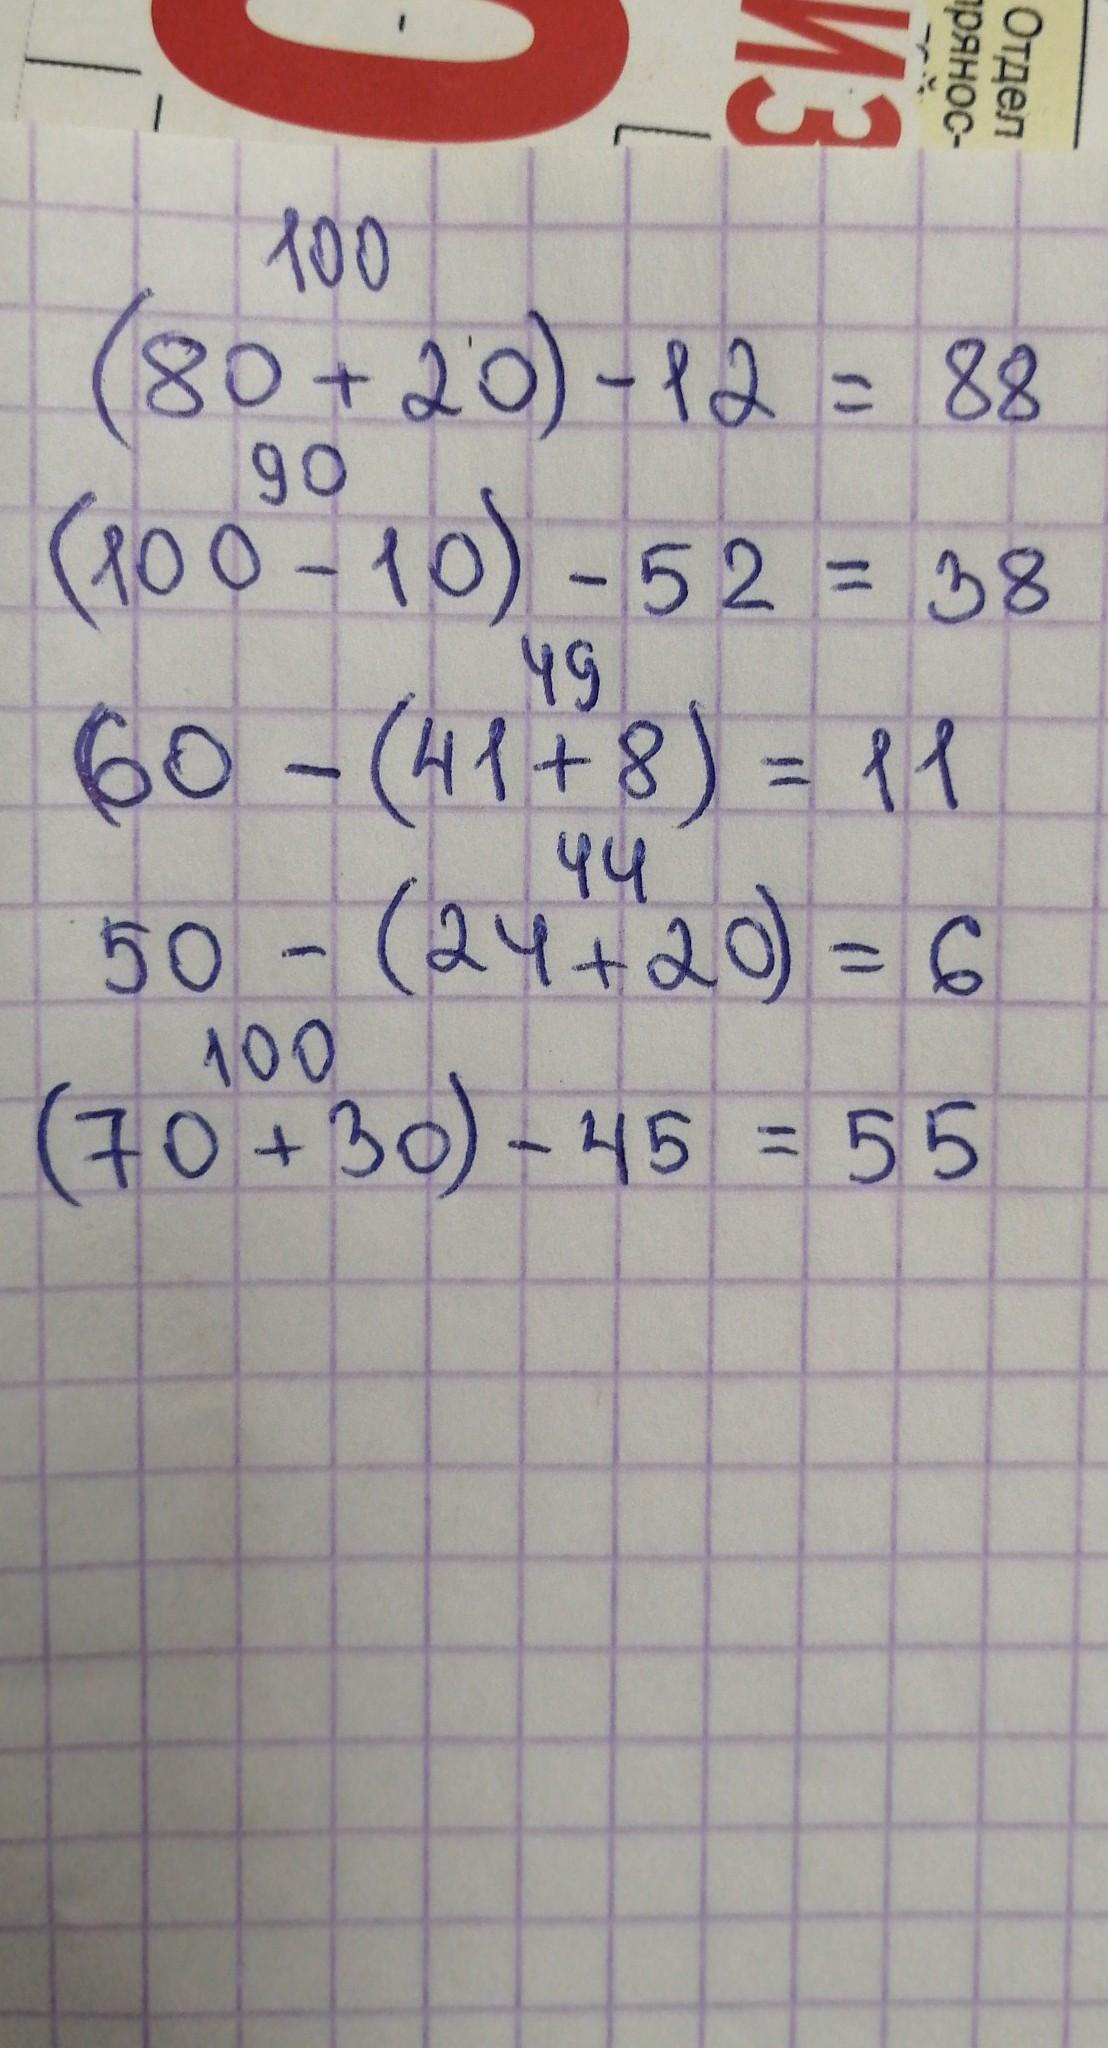 Отдел
прянос-
ИЗ
100
(80 + 20) - 12 = 88
90
(100 - 10) - 52 = 38
49
60 - (41 + 8) = 11
44
50 - (24 + 20) = 6
100
(70 + 30) - 45 = 55